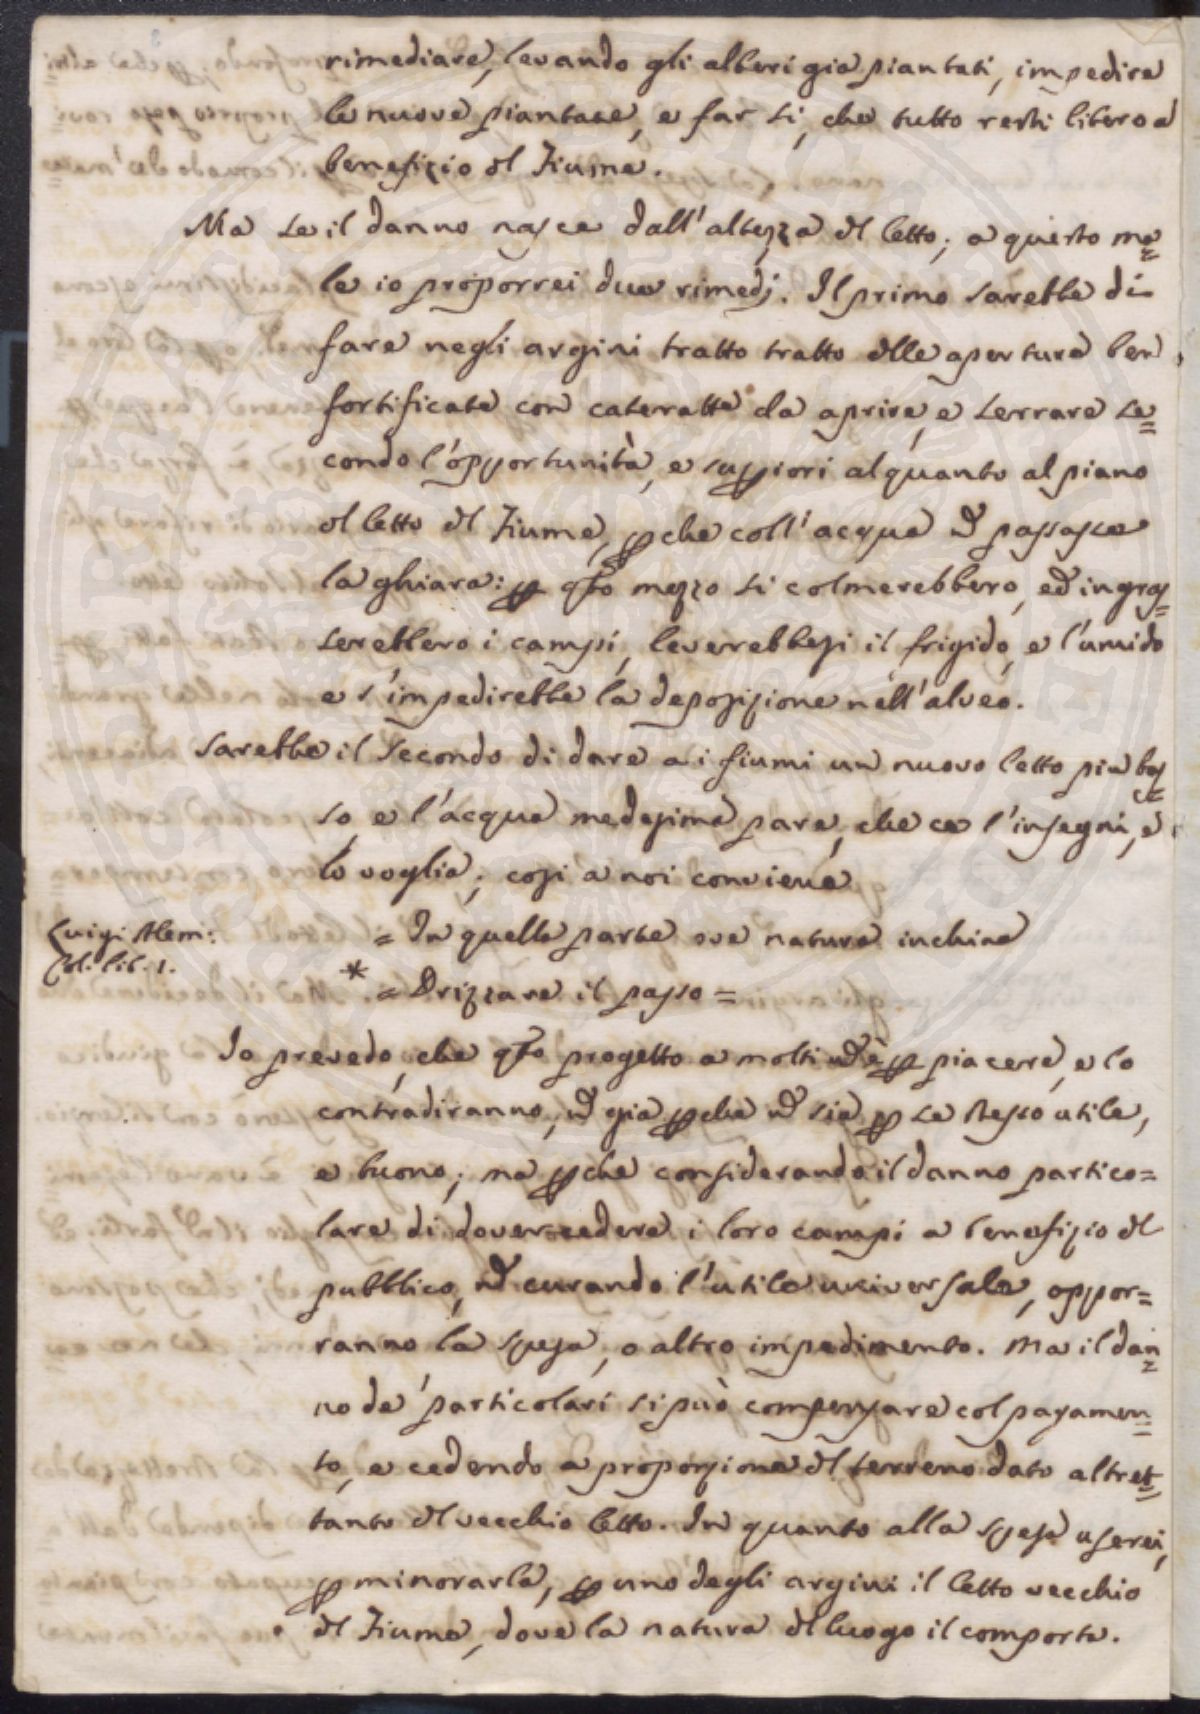 rimediare, levando gli alberi già piantati, impedire
le nuove piantate, e far sì, che tutto resti libero a
benefizio dl Fiume.
Ma se il danno nasce dall'altezza dl letto; a questo ma=
le io proporrei due rimedj. Il primo sarebbe di
fare negli argini tratto tratto dlle aperture ben
fortificate con cateratte da aprire, e serrare se=
condo l'opportunità, e suppiori alquanto al piano
dl letto dl Fiume, pche coll'acqua nō passasse
la ghiara: p qsto mezzo si colmerebbero, ed ingras=
serebbero i campi, leverebbesi il frigido, e l'umido
e s'impedirebbe la deposizione nell'alveo.
Sarebbe il secondo di dare a i fiumi un nuovo letto più bas=
so, e l'acqua medesima pare, che ce l'insegni, e
lo voglia; così a noi conviene
Luigi Alem:
Col. lib. 1.
= In quella parte ove natura inchina
* = Drizzare il passo =
Io prevedo, che qsto progetto a molti nō è p piacere, e lo
contradiranno, nō già pche nō sia p se stesso utile,
e buono; ma pche considerando il danno partico=
lare di dover cedere i loro campi a benefizio dl
pubblico, nō curando l'utile universale, oppor=
ranno la spesa, o altro impedimento. Ma il dan=
no de' particolari si può compensare col pagamen=
to, e cedendo a proporzione dl terreno dato altret=
tanto dl vecchio letto. In quanto alla spesa userei,
p minorarla, p uno degli argini il letto vecchio
dl Fiume, dove la natura dl luogo il comporta.